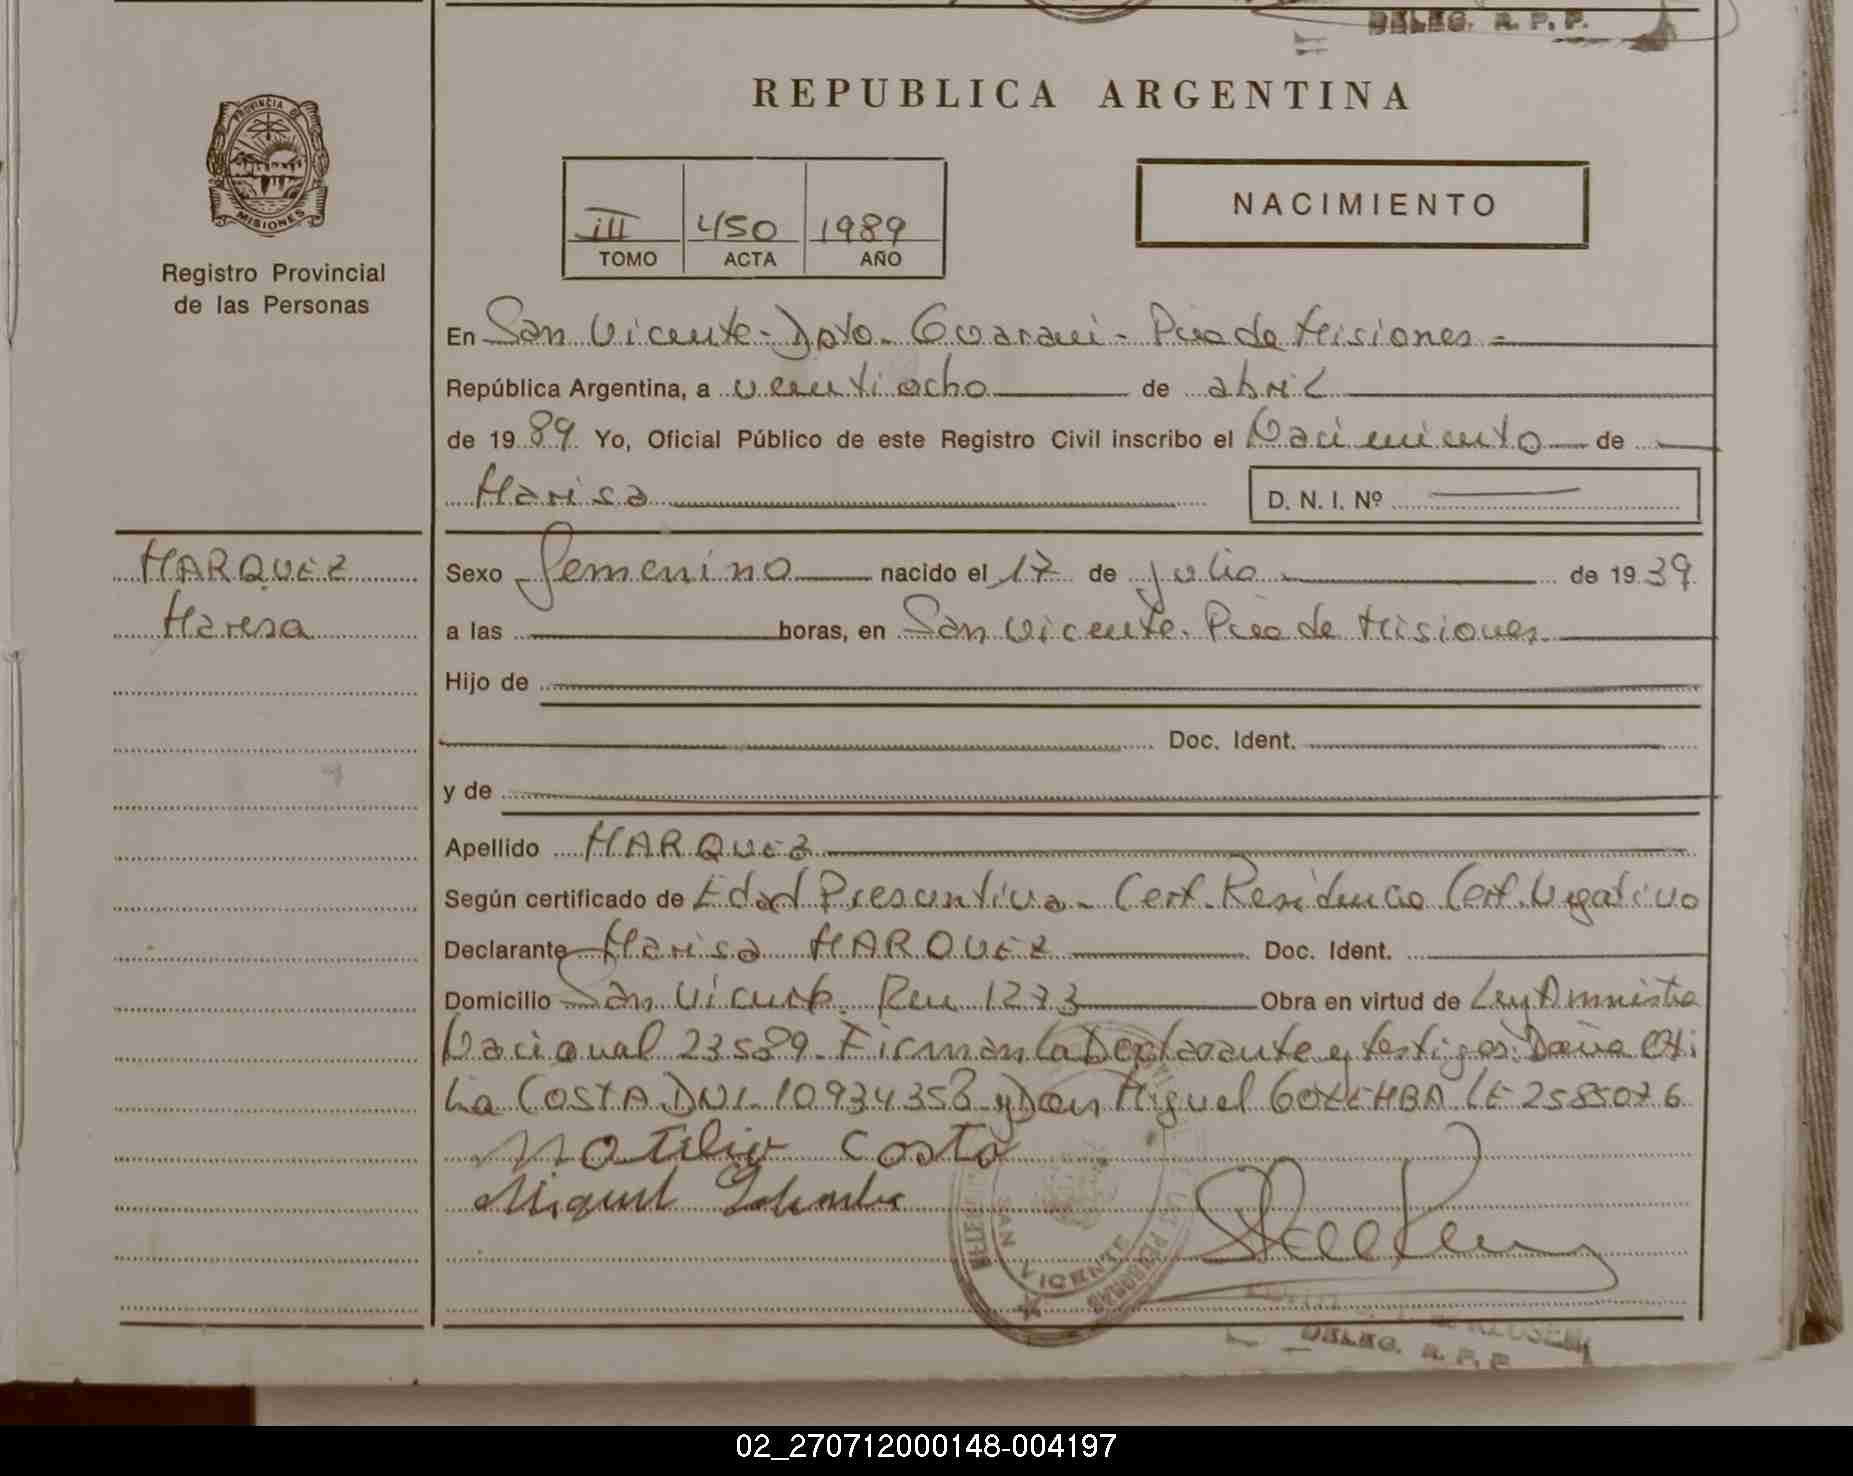 DELEG. R. P. P.
REPUBLICA ARGENTINA
PROVINCIA DE
MISIONES
Registro Provincial
de las Personas
III 450 1989
TOMO ACTA AÑO
NACIMIENTO
En San Vicente - Dpto. Guaraní - Pcia de Misiones -
República Argentina, a veinti ocho de abril
de 1989 Yo, Oficial Público de este Registro Civil inscribo el Nacimiento de
Marisa D. N. I. Nº
MARQUEZ
Marisa
Sexo femenino nacido el 17 de julio de 1939
a las horas, en San Vicente. Pcia de Misiones
Hijo de
Doc. Ident.
y de
Apellido MARQUEZ
Según certificado de Edad Presuntiva - Cert. Residencia Cert. Negativo
Declarante Marisa MARQUEZ Doc. Ident.
Domicilio San Vicente. 1273 Obra en virtud de Ley Amnistia
Nacional 23589. Firman la Declarante y testigos: Doña Oti
lia COSTA DNI. 10934358 y Don Miguel GOLEMBA LE 2585076
Costa
Miguel
SAN VICENTE
DELEG. R. P. P.
02_270712000148-004197